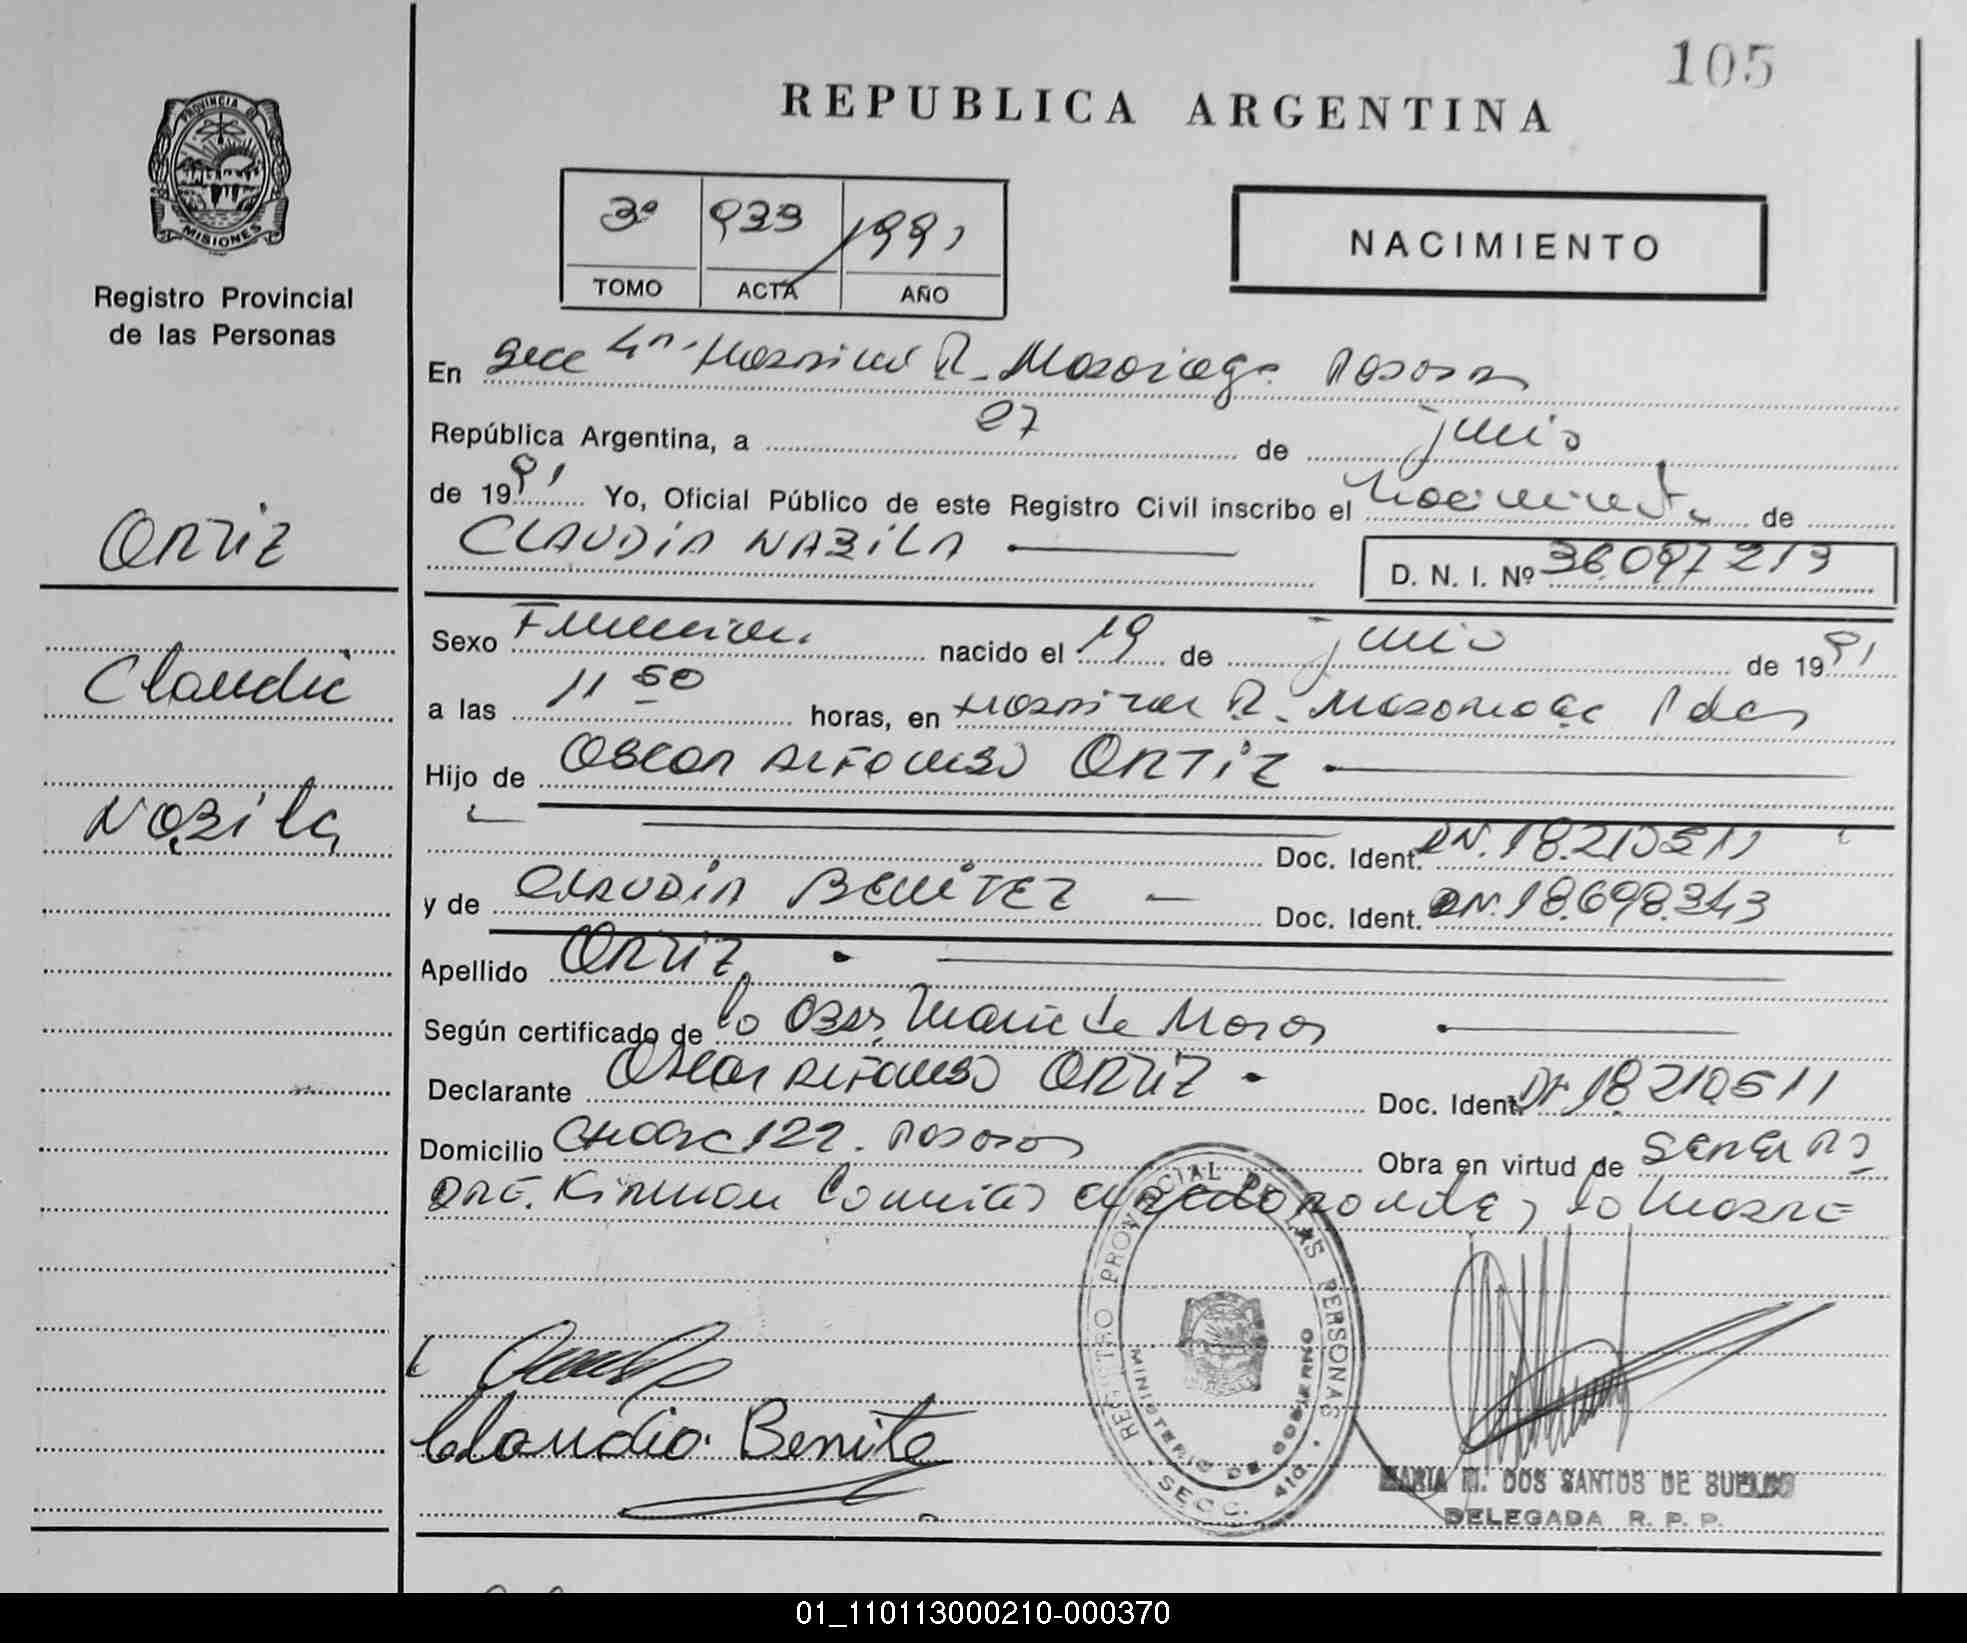 105
REPUBLICA ARGENTINA
PROVINCIA DE
MISIONES
Registro Provincial
de las Personas
3º 933 1991
TOMO ACTA AÑO
NACIMIENTO
En Secc 4ta. Hospital R. Madariaga Posadas
República Argentina, a 27 de junio
de 1991 Yo, Oficial Público de este Registro Civil inscribo el nacimiento de
CLAUDIA NABILA
D. N. I. Nº 36.097213
Ortiz
Claudia
Nabila
Sexo Femenino nacido el 19 de junio de 1991
a las 11 50 horas, en Hospital R. Madariaga Pdas
Hijo de Oscar Alfonso ORTIZ
Doc. Ident. DN. 18.210511
y de CLAUDIA BENITEZ Doc. Ident. DN. 18.698.343
Apellido ORTIZ
Según certificado de la Obst. Maria de
Declarante Oscar Alfonso ORTIZ Doc. Ident. 18210511
Domicilio 122. Posadas Obra en virtud de ser el pa
dre. Firman la madre
Claudia Benite
REGISTRO PROVINCIAL DE LAS PERSONAS
MINISTERIO DE GOBIERNO
SECC. 4ta.
MARIA M. DOS SANTOS DE
DELEGADA R. P. P.
01_110113000210-000370